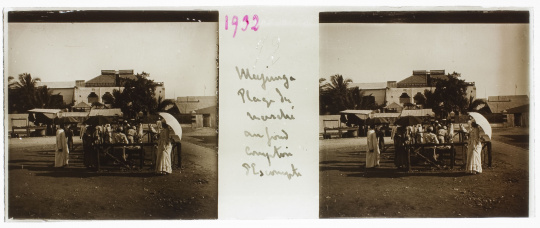 1932
Majunga
Place du
marché
au fond
comptoir
d'Escompte